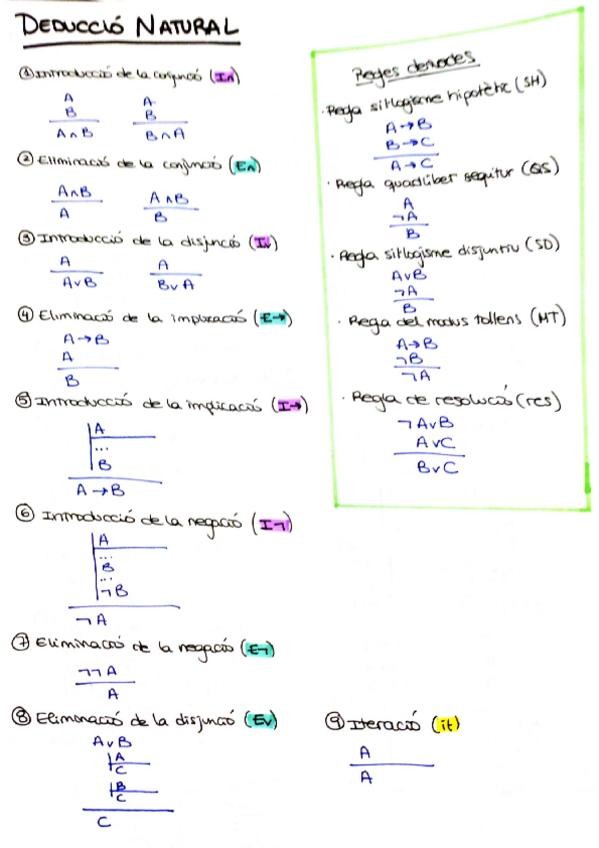 DEDUCCIÓ NATURAL
① Introducció de la conjunció (I∧)
A
B
A∧B
A
B
B∧A
② Eliminació de la conjunció (E∧)
A∧B
A
A∧B
B
③ Introducció de la disjunció (I∨)
A
A∨B
A
B∨A
④ Eliminació de la implicació (E→)
A→B
A
B
⑤ Introducció de la implicació (I→)
A
...
B
A→B
⑥ Introducció de la negació (I¬)
A
...
B
...
¬B
¬A
⑦ Eliminació de la negació (E¬)
¬¬A
A
⑧ Eliminació de la disjunció (E∨)
A∨B
A
C
B
C
C
⑨ Iteració (it)
A
A
Regles derivades
· Regla sil·logisme hipotètic (SH)
A→B
B→C
A→C
· Regla quodlíber sequitur (QS)
A
¬A
B
· Regla sil·logisme disjuntiu (SD)
A∨B
¬A
B
· Regla del modus tollens (MT)
A→B
¬B
¬A
· Regla de resolució (res)
¬A∨B
A∨C
B∨C